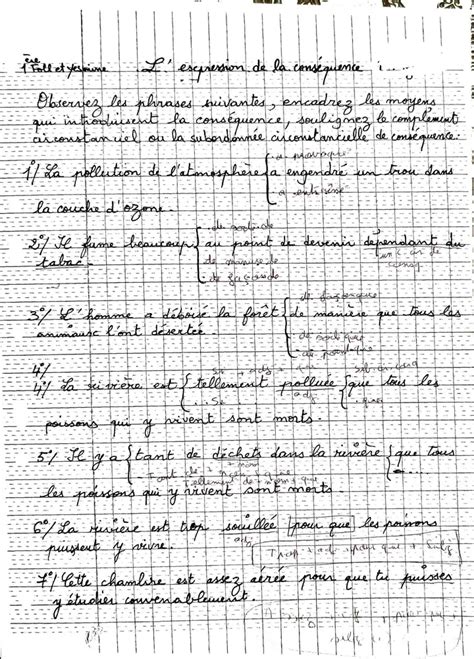 L'expression de la conséquence
Observez les phrases suivantes, encadrez les moyens
qui introduisent la conséquence, soulignez le complément
circonstanciel ou la subordonnée circonstancielle de conséquence.
a provoqué
1°/ La pollution de l'atmosphère a engendré un trou dans
a entraîné
la couche d'ozone.
2°/ Il fume beaucoup au point de devenir dépendant du
tabac.
de façon que
3°/ L'homme a déboisé la forêt de manière que tous les
animaux l'ont désertée.
de sorte que
au point que
4°/
4°/ La rivière est tellement polluée que tous les
adj
poissons qui y vivent sont morts.
5°/ Il y a tant de déchets dans la rivière que tous
Tellement de + nom + que
les poissons qui y vivent sont morts.
6°/ La rivière est trop souillée pour que les poissons
adj
puissent y vivre.
Trop + adj + pour que + subj
7°/ Cette chambre est assez aérée pour que tu puisses
y étudier convenablement.